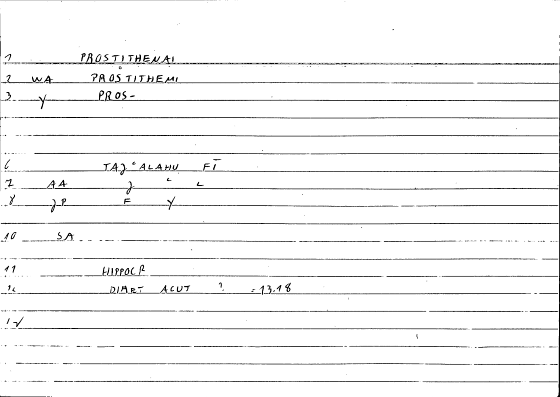 1 PROSTITHENAI
2 WA PROSTITHEMI
3 Y PROS-
6 TAJʿALAHU FĪ
7 AA J ʿ L
8 JP F Y
10 SA
11 HIPPOCR
12 DIAET ACUT = 13.18